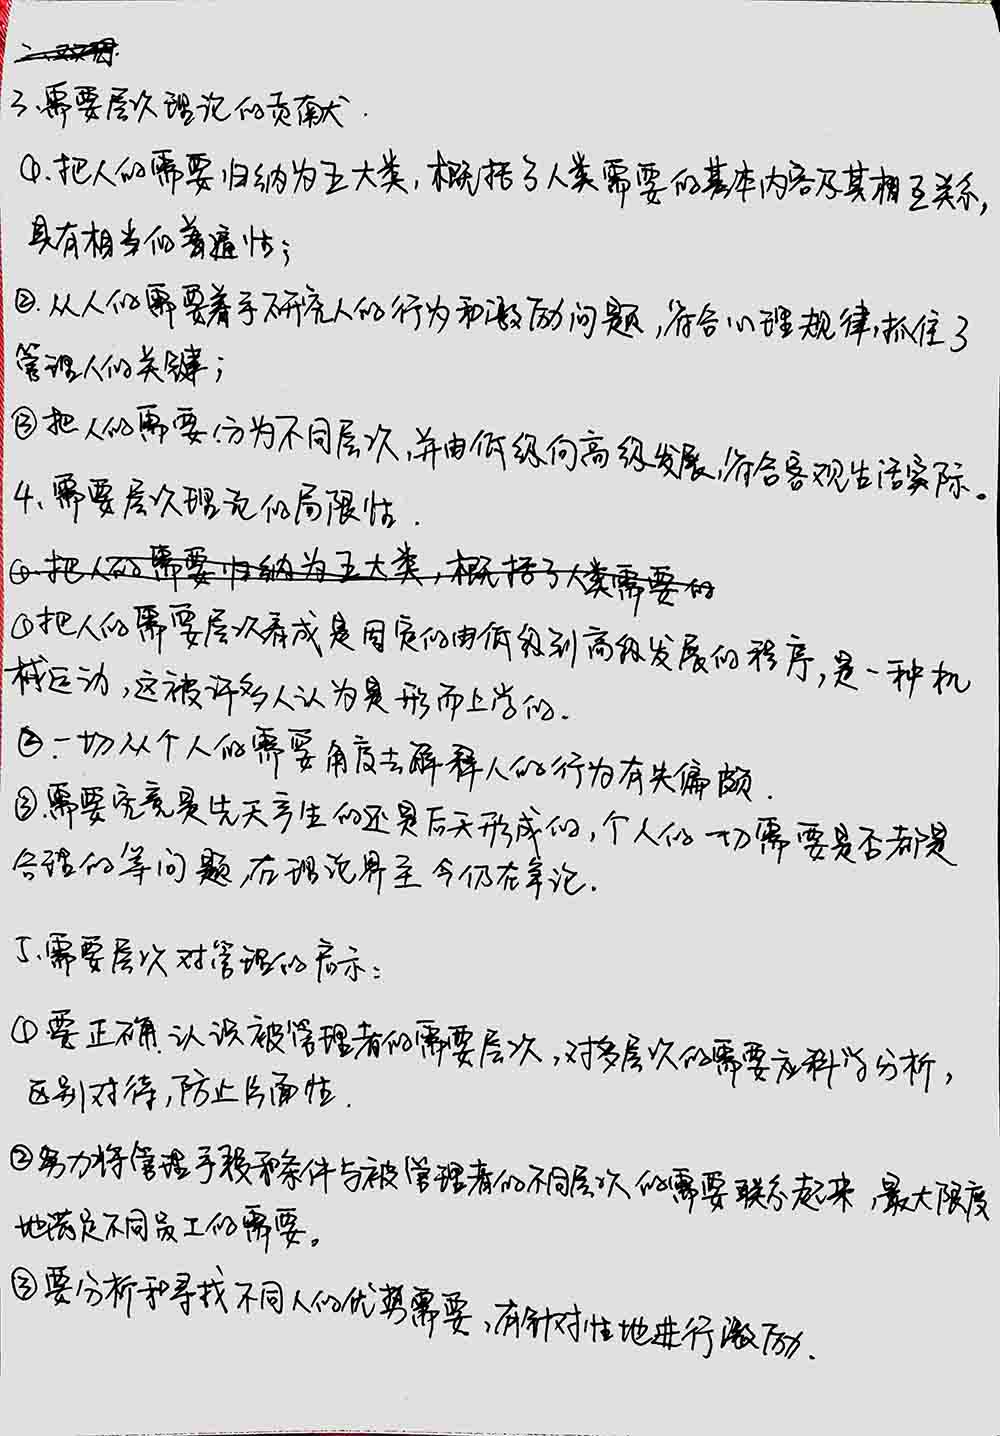 3、需要层次理论的贡献.
①.把人的需要归纳为五大类,概括了人类需要的基本内容及其相互关系,
具有相当的普遍性;
②.从人的需要着手研究人的行为和激励问题,符合心理规律,抓住了
管理人的关键;
③把人的需要分为不同层次,并由低级向高级发展,符合客观生活实际。
4、需要层次理论的局限性.
①.把人的需要归纳为五大类,概括了人类需要的
①把人的需要层次看成是固定的由低级到高级发展的程序,是一种机
械运动,这被许多人认为是形而上学的.
②.一切从个人的需要角度去解释人的行为有失偏颇.
③.需要究竟是先天产生的还是后天形成的,个人的一切需要是否都是
合理的等问题,在理论界至今仍在争论.
5、需要层次对管理的启示:
①要正确认识被管理者的需要层次,对多层次的需要应科学分析,
区别对待,防止片面性.
②努力将管理手段和条件与被管理者的不同层次的需要联系起来,最大限度
地满足不同员工的需要。
③要分析和寻找不同人的优势需要,有针对性地进行激励.